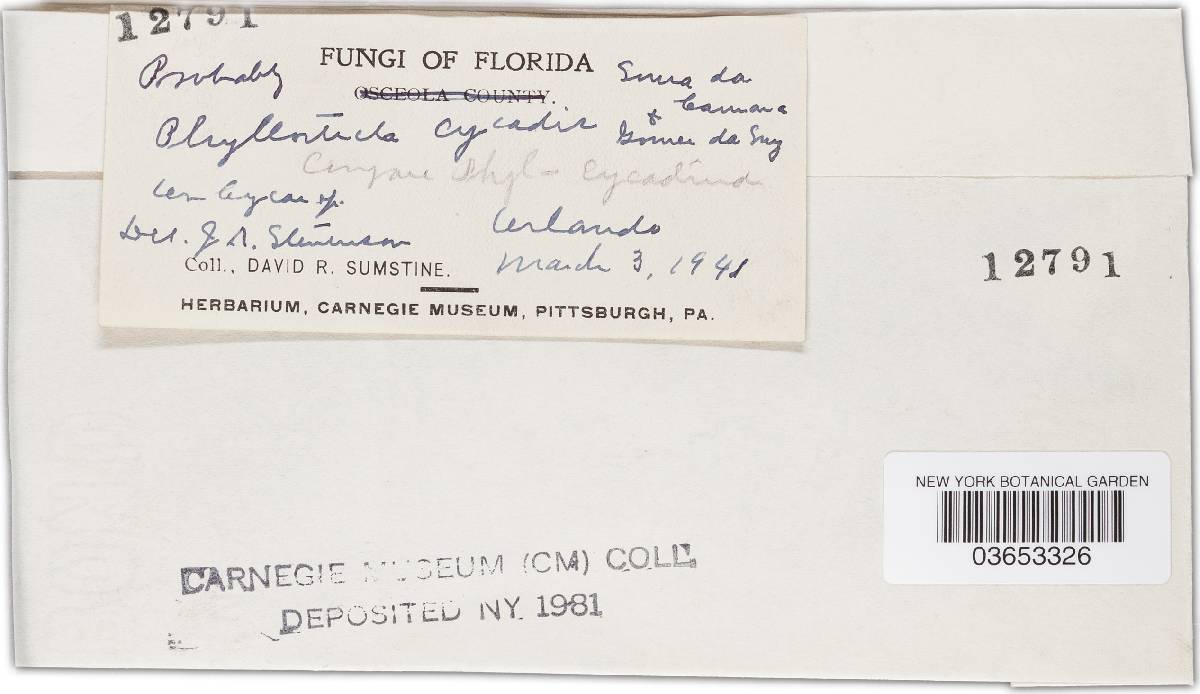 12791
FUNGI OF FLORIDA
OSCEOLA COUNTY.
Probably
Phyllosticta cycadis
Sousa da
Camara
&
Gomes da
Compare Phyl-
on Cycas sp.
Orlando
Det. J. A. Stevenson
March 3, 1941
Coll., DAVID R. SUMSTINE.
HERBARIUM, CARNEGIE MUSEUM, PITTSBURGH, PA.
12791
NEW YORK BOTANICAL GARDEN
03653326
CARNEGIE MUSEUM (CM) COLL.
DEPOSITED NY. 1981